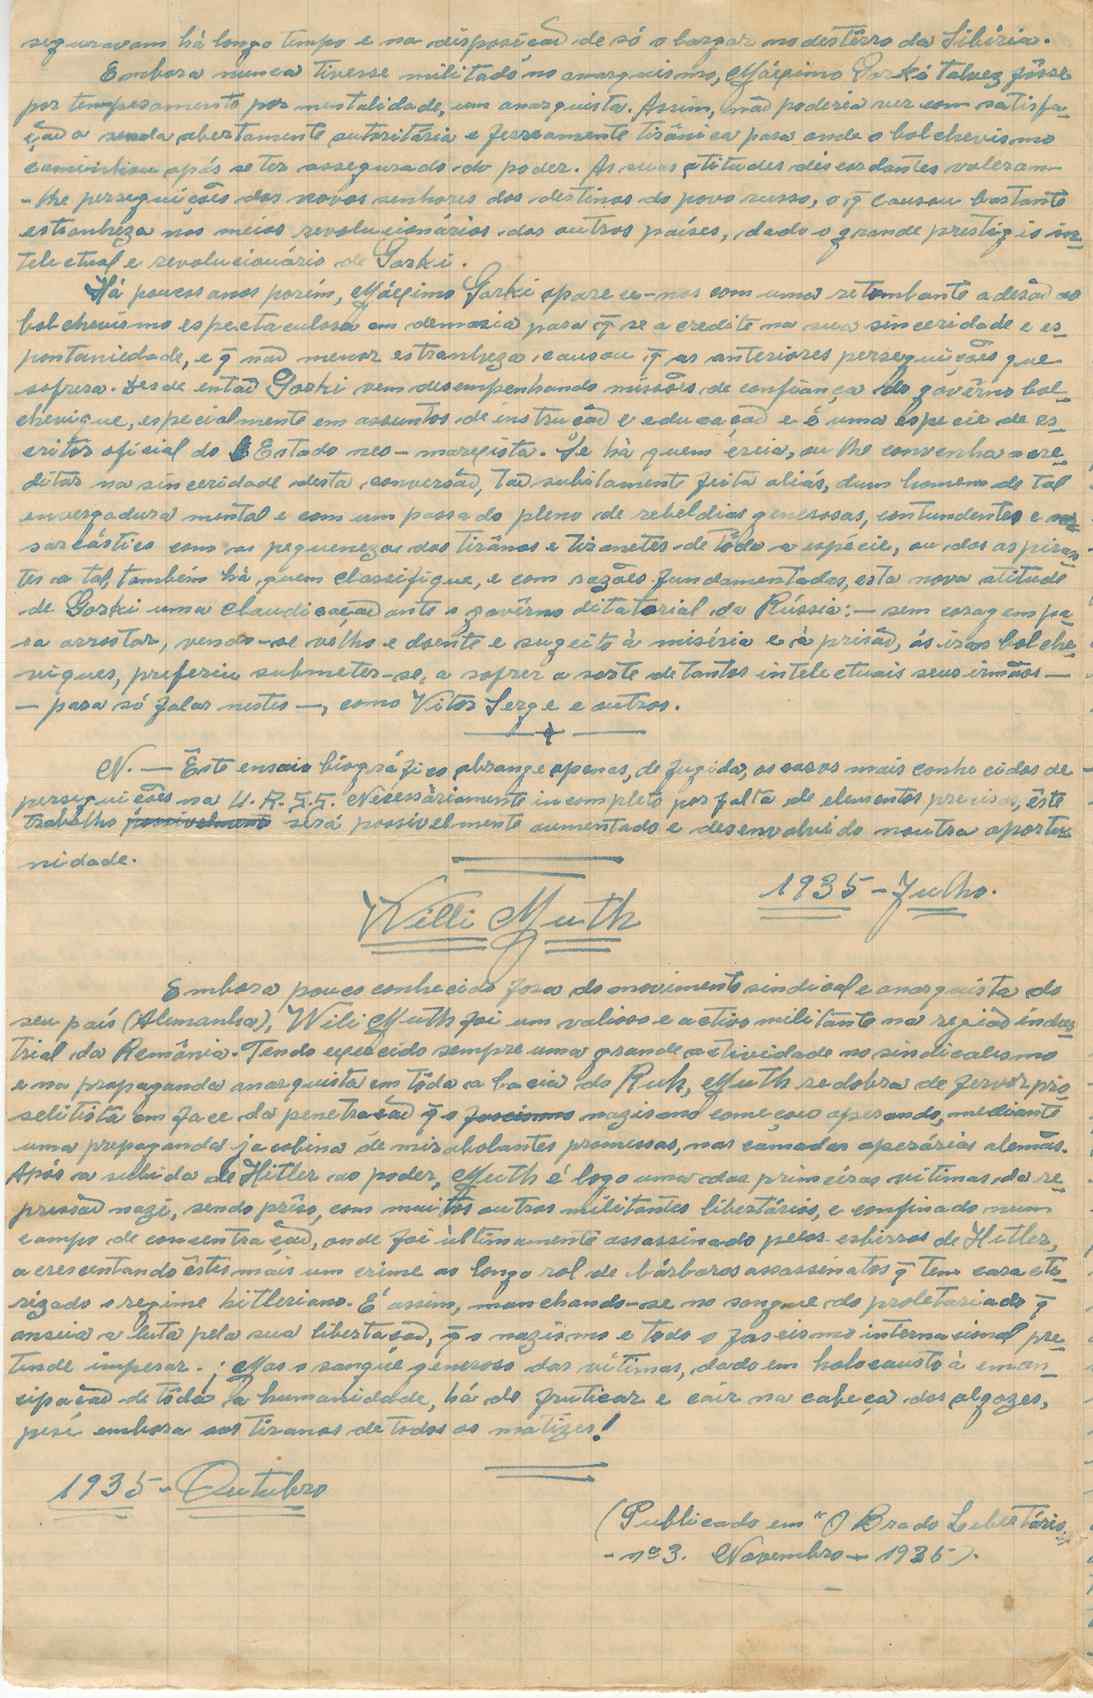 seguravam há longo tempo e na disposição de só o largar no destêrro da Sibéria.
Embora nunca tivesse militado no anarquismo, Máximo Gorki talvez fôsse
por temperamento por mentalidade, um anarquista. Assim, não poderia ver com satisfa-
ção a senda abertamente autoritária e ferreamente tirânica para onde o bolchevismo
caminhou após se ter assegurado do poder. As suas atitudes discordantes valeram-
-lhe perseguições dos novos senhores dos destinos do povo russo, o q̃ causou bastante
estranheza nos meios revolucionários dos outros países, dado o grande prestigio in-
telectual e revolucionário de Gorki.
Há poucos anos porém, Máximo Gorki aparece-nos com uma retumbante adesão ao
bolchevismo espectaculosa em demasia para q̃ se acredite na sua sinceridade e es-
pontaniedade, e q̃ não menor estranheza causou q̃ as anteriores perseguições que
sofrera. Desde então Gorki vem desempenhando missões de confiança do govêrno bol-
chevique, especialmente em assuntos de instrução e educação e é uma espécie de es-
critor oficial do Estado neo-marxista. Se há quem creia, ou lhe convenha acre-
ditar na sinceridade desta conversão, tão subitamente feita aliás, dum homem de tal
envergadura mental e com um passado pleno de rebeldias generosas, contundentes e
sarcástico com as pequenezas dos tirânos e tiranetes de tôda a espécie, ou dos aspiran-
tes a tal, também há quem classifique, e com razões fundamentadas, esta nova atitude
de Gorki uma claudicação ante o govêrno ditatorial da Rússia: — sem coragem pa-
ra arrostar, vendo-se velho e doente e sugeito à miséria e à prisão, ás iras bolche-
viques, preferiu submeter-se, a sofrer a sorte de tantos intelectuais seus irmãos —
— para só falar nestes —, como Vitor Serge e outros.
N. — Êste ensaio biográfico abrange apenas, de fugida, os casos mais conhecidos de
perseguições na U.R.S.S. Necessàriamente incompleto por falta de elementos precisos, êste
trabalho possivelmente será possivelmente aumentado e desenvolvido noutra oportu-
nidade.
1935 - Julho.
Willi Muth
Embora pouco conhecido fora do movimento sindical e anarquista do
seu país (Alemanha), Wili Muth foi um valioso e activo militante na região indus-
trial da Remânia. Tendo exercido sempre uma grande actividade no sindicalismo
e na propaganda anarquista em tôda a bacia do Ruhr, Muth redobra de fervor pro-
selitista em face da penetração q̃ o fascismo nazismo começou operando, mediante
uma propaganda jacobina de mirabolantes promessas, nas camadas operárias alemãs.
Após a subida de Hitler ao poder, Muth é logo uma das primeiras vitimas da re-
pressão nazi, sendo prêso, com muitos outros militantes libertários, e confinado num
campo de concentração, onde foi ùltimamente assassinado pelos esbirros de Hitler,
acrescentando êstes mais um crime ao longo rol de bárbaros assassinatos q̃ tem caracte-
rizado o regime hitleriano. É assim, manchando-se no sangue do proletariado q̃
anseia e luta pela sua libertação, q̃ o nazismo e todo o fascismo internacional pre-
tende imperar. ¡Mas o sangue generoso das vítimas, dado em holocausto à eman-
cipação de tôda a humanidade, há de fruticar e caír na cabeça dos algozes,
pese embora aos tiranos de todos os matizes!
1935 - Outubro
(Publicado em "O Brado Libertário"
- nº 3. Novembro - 1935).